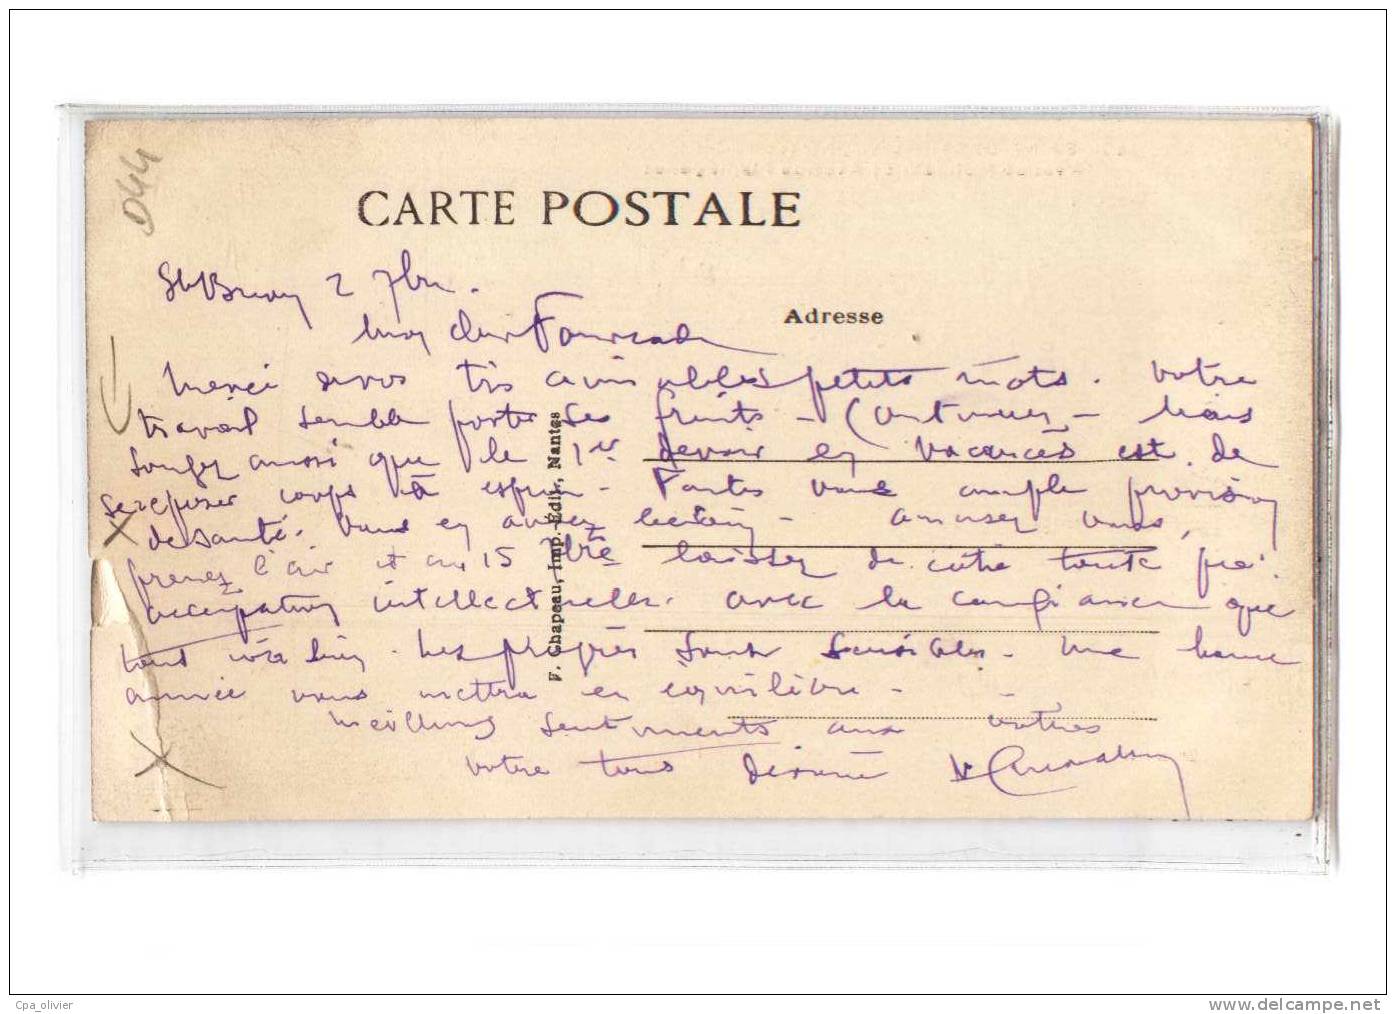 044
CARTE POSTALE
2 7bre.
Adresse
Mon cher Fourcade
Merci de vos très aimables petits mots. Votre
travail semble porter ses fruits - Continuez - Mais
songez aussi que le 1er devoir en vacances est de
se reposer corps et esprit - Faites vous ample provision
de santé. Vous en avez besoin - amusez vous,
prenez l'air et au 15 7bre laissez de côté toute pré-
occupation intellectuelle. avec la confiance que
tout ira bien. Les progrès sont sensibles. Une bonne
année vous mettra en équilibre -
Meilleurs sentiments aux vôtres
votre tout dévoué
F. Chapeau, Imp.-Édit., Nantes
Cpa_olivier
www.delcampe.net